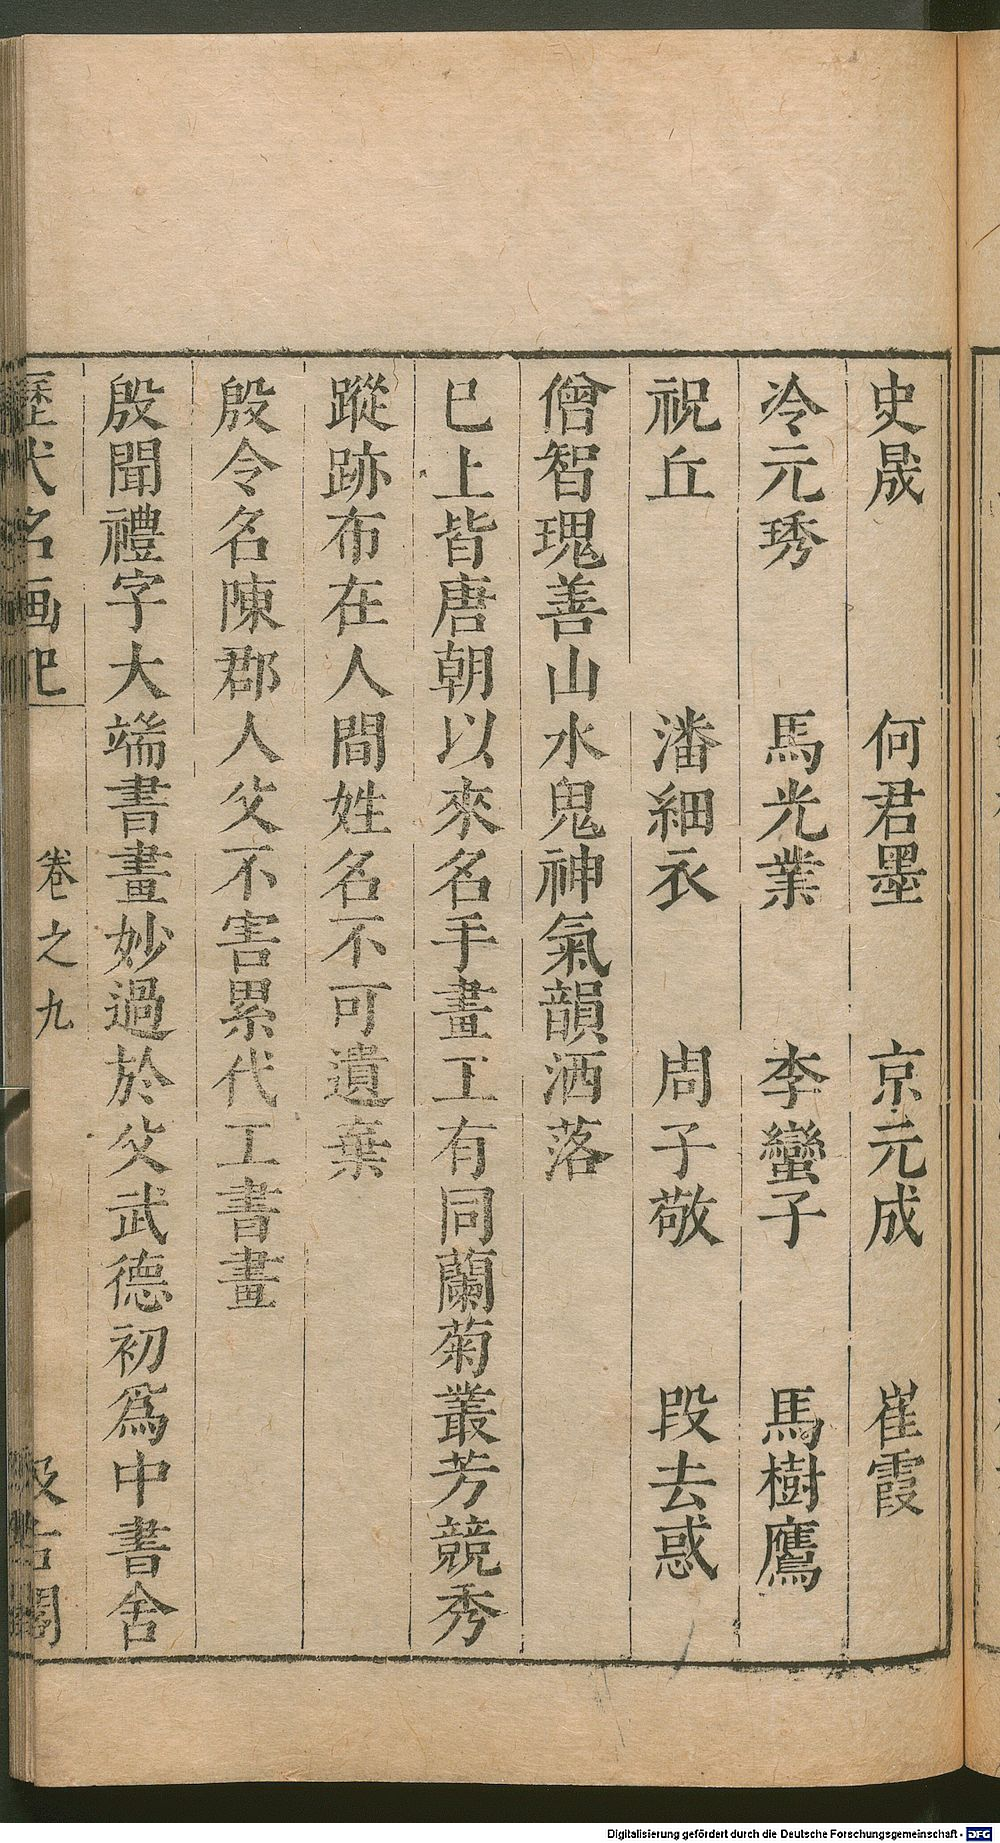 史晟　何君墨　京元成　崔霞
冷元琇　馬光業　李蠻子　馬樹鷹
祝丘　潘細衣　周子敬　段去惑
僧智瑰善山水鬼神氣韻洒落
已上皆唐朝以來名手畫工有同蘭菊叢芳競秀
蹤跡布在人間姓名不可遺棄
殷令名陳郡人父不害累代工書畫
殷聞禮字大端書畫妙過於父武德初爲中書舍
歷代名画记　卷之九　汲古閣
Digitalisierung gefördert durch die Deutsche Forschungsgemeinschaft - DFG